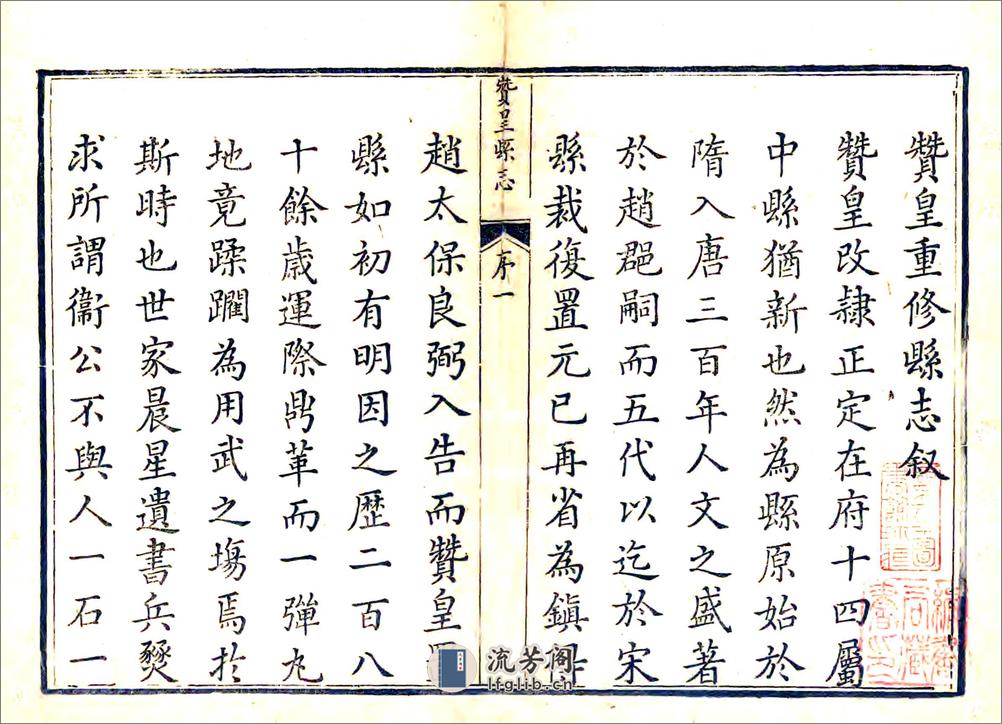 贊皇重修縣志叙
贊皇改隸正定在府十四屬
中縣猶新也然為縣原始於
隋入唐三百年人文之盛著
於趙郡嗣而五代以迄於宋
縣裁復置元已再省為鎮
贊皇縣志
序一
趙太保良弼入告而贊皇
縣如初有明因之歷二百八
十餘歲運際鼎革而一彈丸
地竟蹂躪為用武之塲焉扵
斯時也世家晨星遺書兵燹
求所謂衞公不與人一石一
流芳阁
lfglib.cn